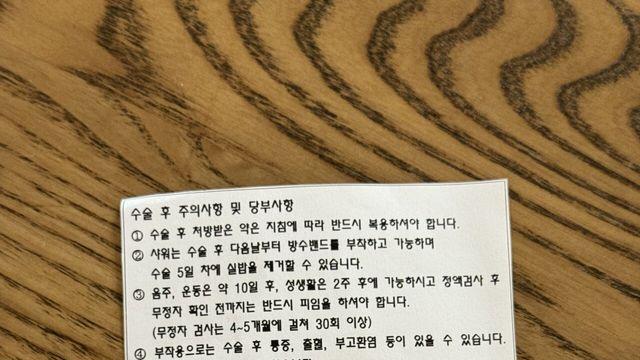 수술 후 주의사항 및 당부사항
① 수술 후 처방받은 약은 지침에 따라 반드시 복용하셔야 합니다.
② 샤워는 수술 후 다음날부터 방수밴드를 부착하고 가능하며
수술 5일 차에 실밥을 제거할 수 있습니다.
③ 음주, 운동은 약 10일 후, 성생활은 2주 후에 가능하시고 정액검사 후
무정자 확인 전까지는 반드시 피임을 하셔야 합니다.
(무정자 검사는 4~5개월에 걸쳐 30회 이상)
④ 부작용으로는 수술 후 통증, 출혈, 부고환염 등이 있을 수 있습니다.